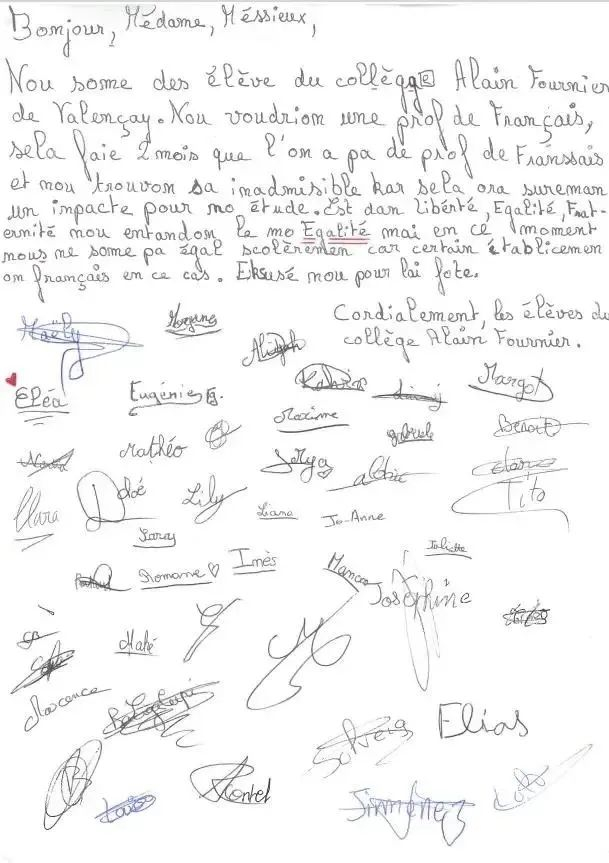 Bonjour, Médame, Méssieux,
Nou some des élève du collègge Alain Fournier
de Valençay. Nou voudrion une prof de Français,
sela faie 2 mois que l'on a pa de prof de Franssais
et nou trouvon sa inadmisible kar sela ora sureman
un impacte pour no étude. Est dan libérté, Egalité, Frat-
ernité nou entandon le mo Egalité mai en ce moment
nous ne some pa égal scolèremen car certain établicemen
on français en ce cas. Ekusé nou pour lai fote.
Cordialement, les élèves du
collège Alain Fournier.
Maëly
Morgane
Margot
Eléa
Eugénie
Maxime
gabriele
Benoit
Mathéo
Clara
Lily
Liana
Jo-Anne
Tito
Romane
Inès
Manon
Juliette
Joséphine
Mahé
Maxence
Solveig
Elias
Louise
Jimenez